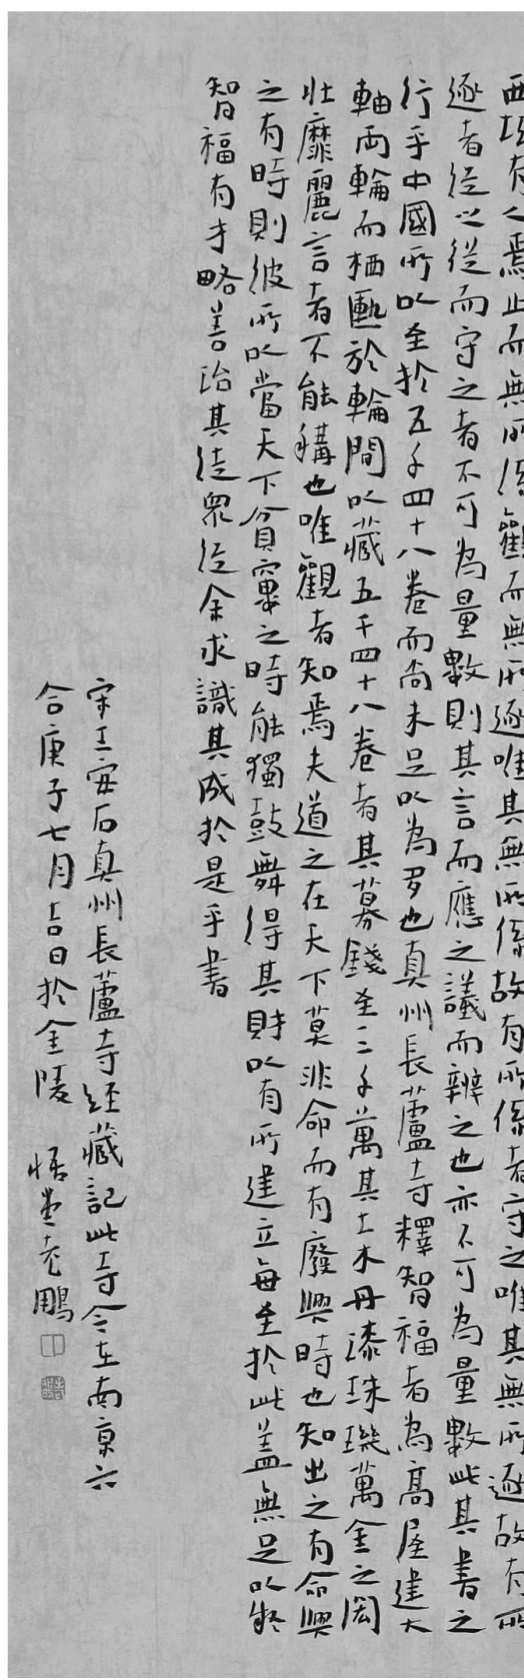 西域有人焉止而無所係觀而無所逐唯其無所係故有所係者守之唯其無所逐故有所
逐者從之從而守之者不可為量數則其言而應之議而辨之也亦不可為量數此其書之
行乎中國所以至於五千四十八卷而尚未足以為多也真州長蘆寺釋智福者為高屋建大
軸兩輪而栖匭於輪間以藏五千四十八卷者其募錢至三千萬其土木丹漆珠璣萬金之閎
壯靡麗言者不能稱也唯觀者知焉夫道之在天下莫非命而有廢興時也知出之有命興
之有時則彼所以當天下貧窶之時能獨鼓舞得其財以有所建立每至於此蓋無足以疑
智福有才略善治其徒眾從余求識其成於是乎書
宋王安石真州長蘆寺經藏記此寺今在南京六
合庚子七月吉日於金陵 悟堂老鵬